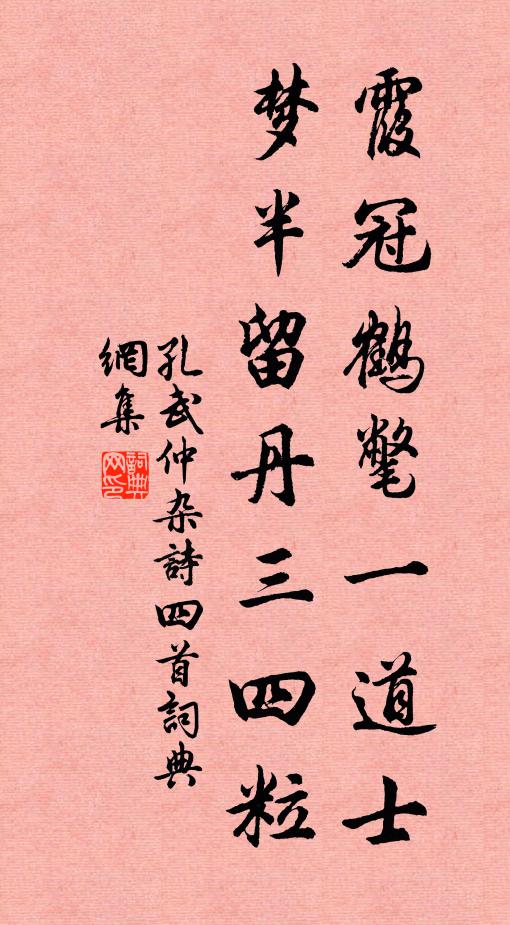 霞冠鶴氅一道士
梦半留丹三四粒
孔武仲杂詩四首詞典
網集
詞典网印